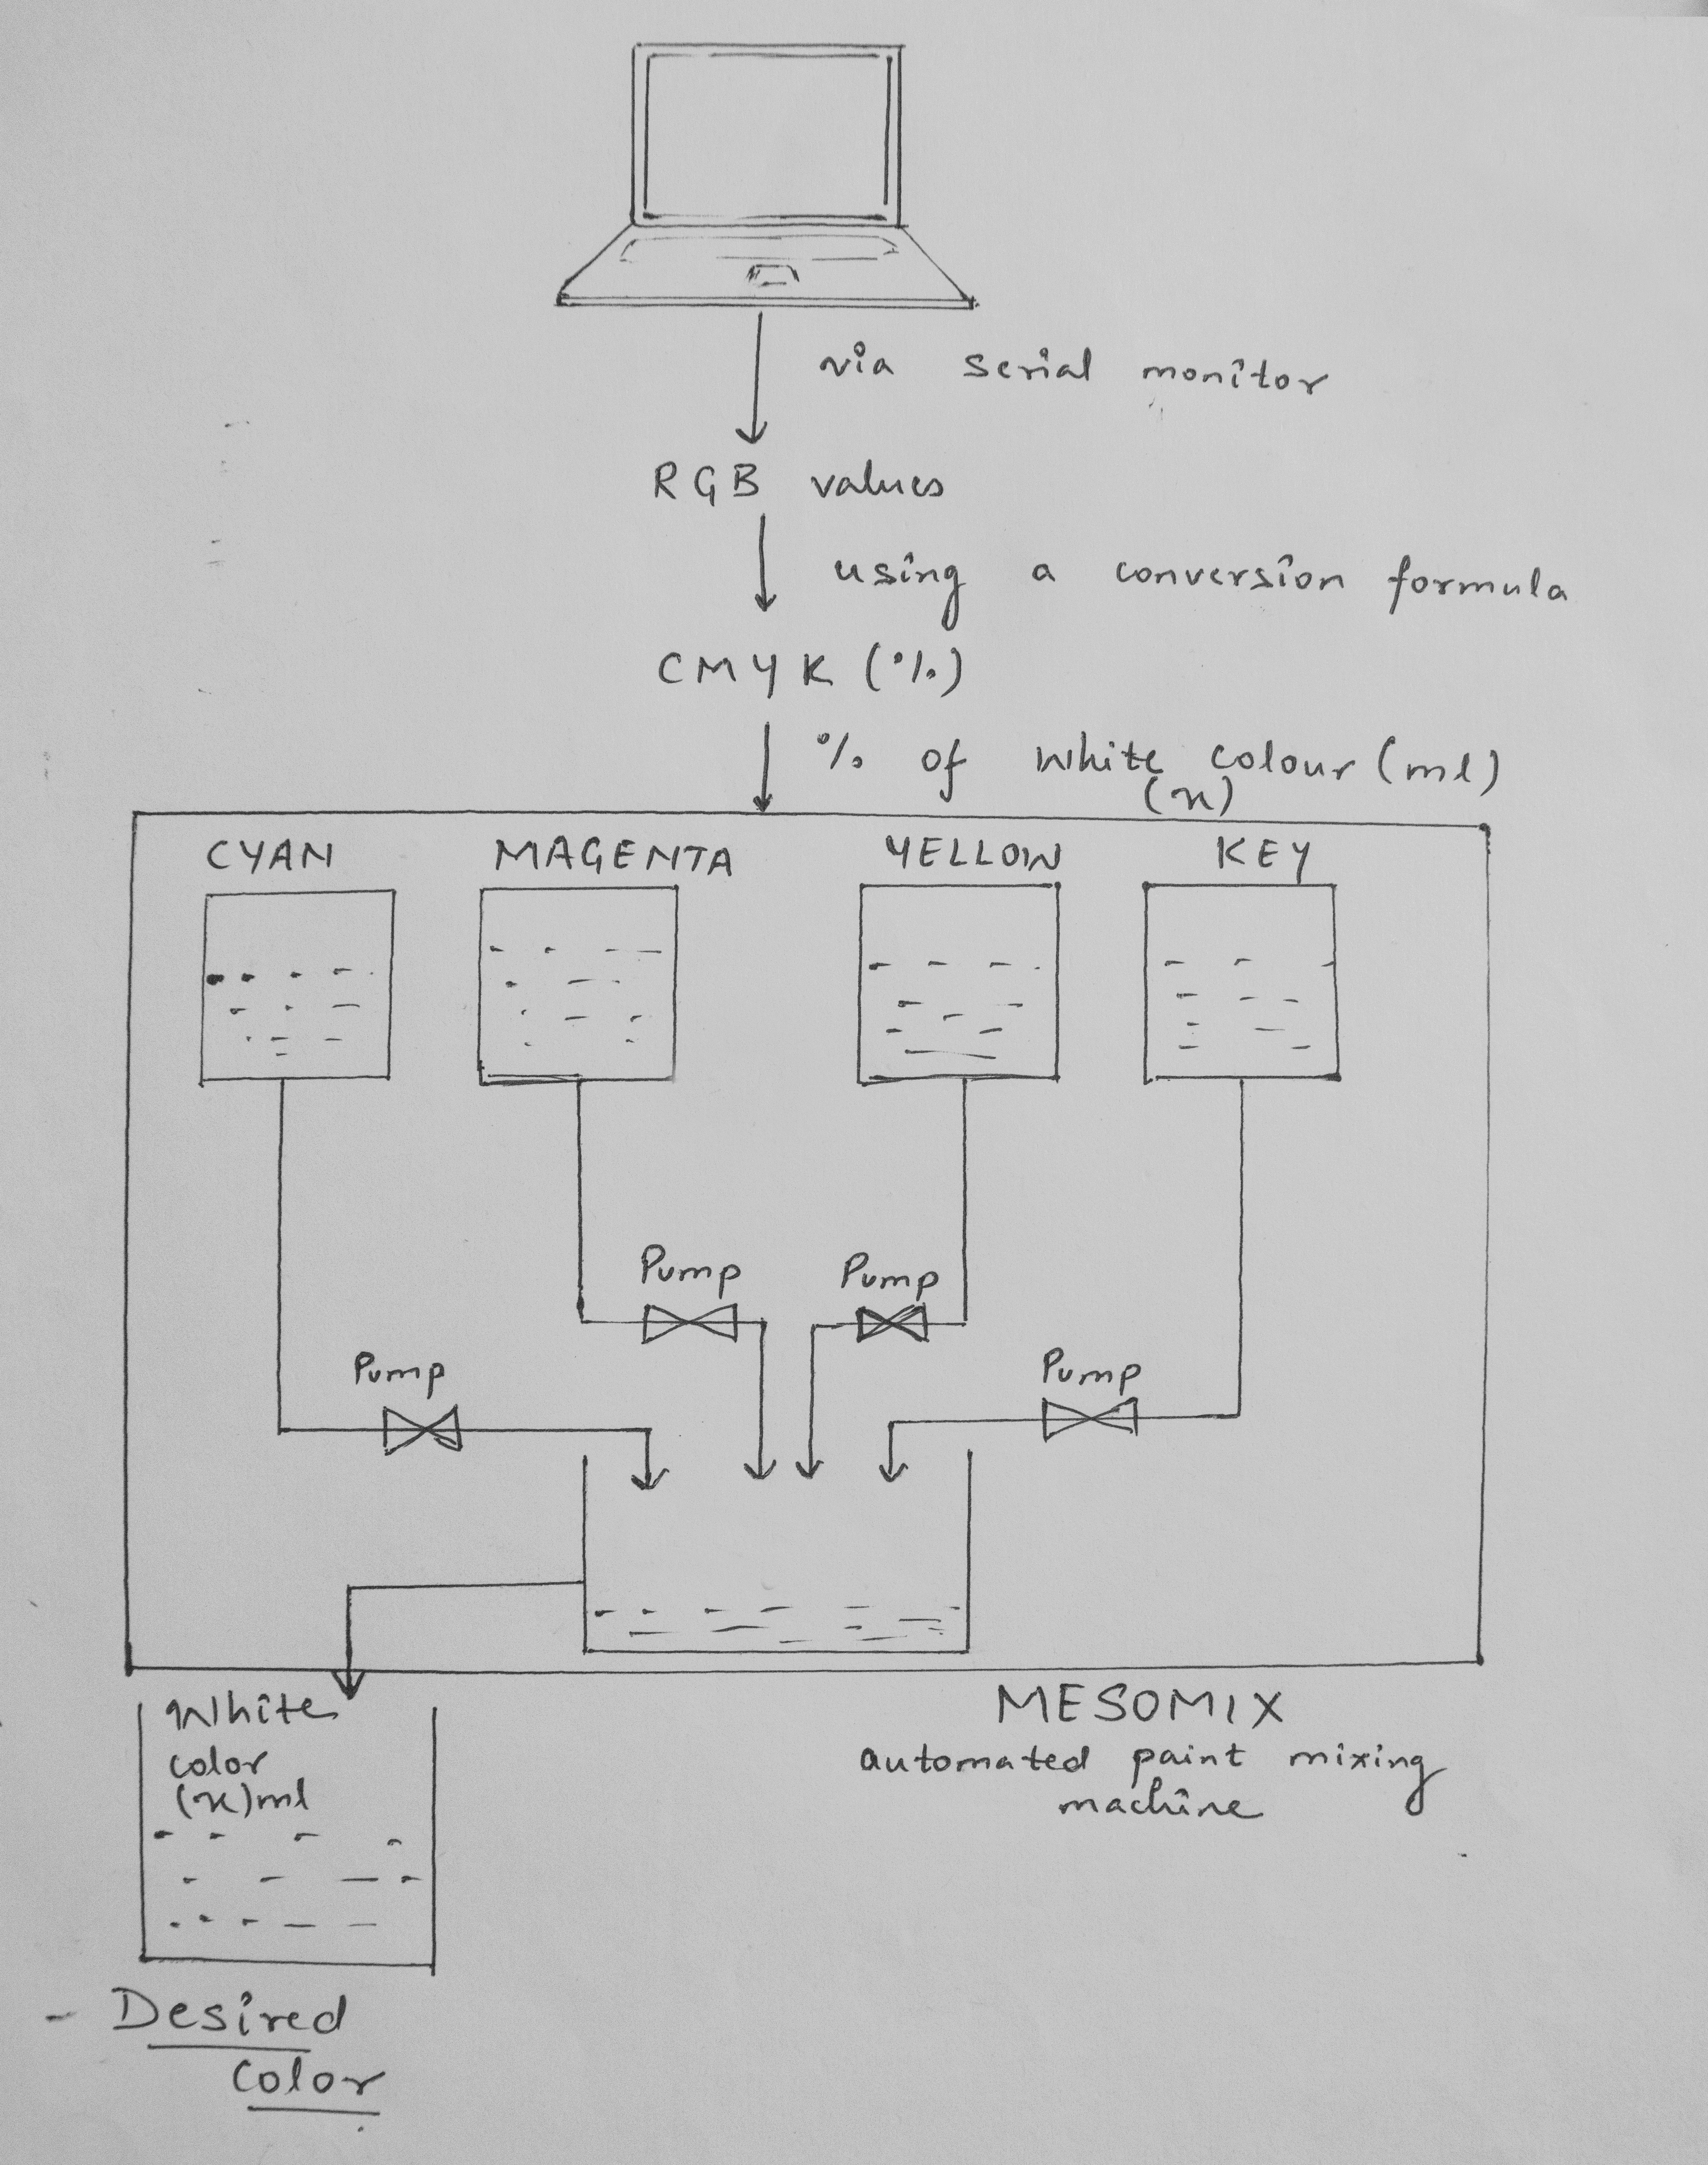 via serial monitor
RGB values
using a conversion formula
CMYK (%)
% of White colour (ml)
(x)
CYAN MAGENTA YELLOW KEY
Pump Pump
Pump Pump
White
color
(x)ml
MESOMIX
automated paint mixing
machine
- Desired
Color